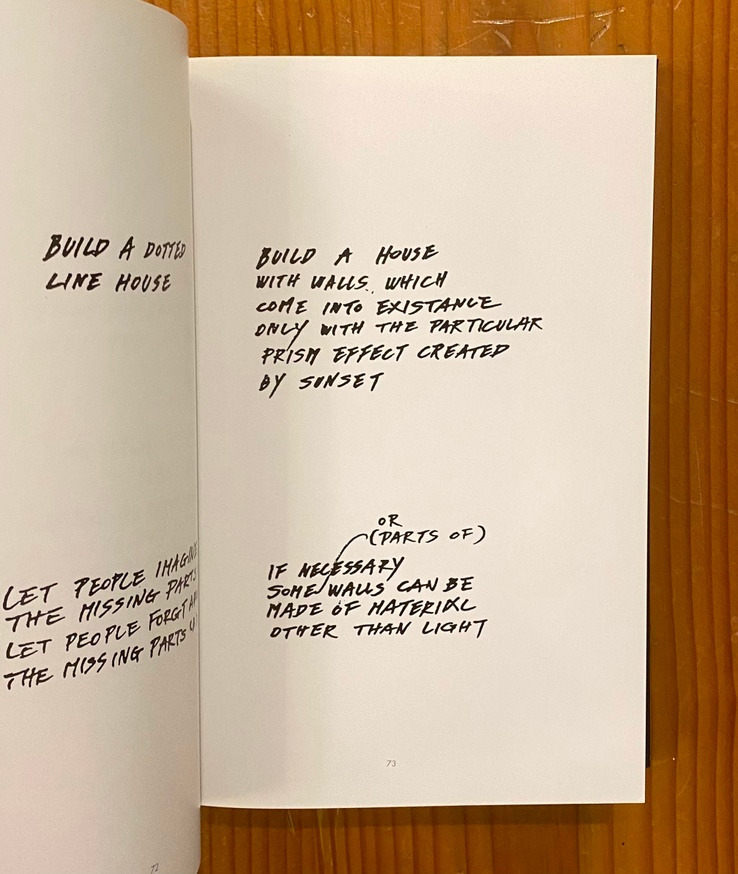 BUILD A DOTTED
LINE HOUSE
LET PEOPLE IMAGINE
THE MISSING PARTS
LET PEOPLE FORGT
THE MISSING PARTS
72
BUILD A HOUSE
WITH WALLS WHICH
COME INTO EXISTANCE
ONLY WITH THE PARTICULAR
PRISM EFFECT CREATED
BY SUNSET
OR
(PARTS OF)
IF NECESSARY
SOME WALLS CAN BE
MADE OF MATERIAL
OTHER THAN LIGHT
73